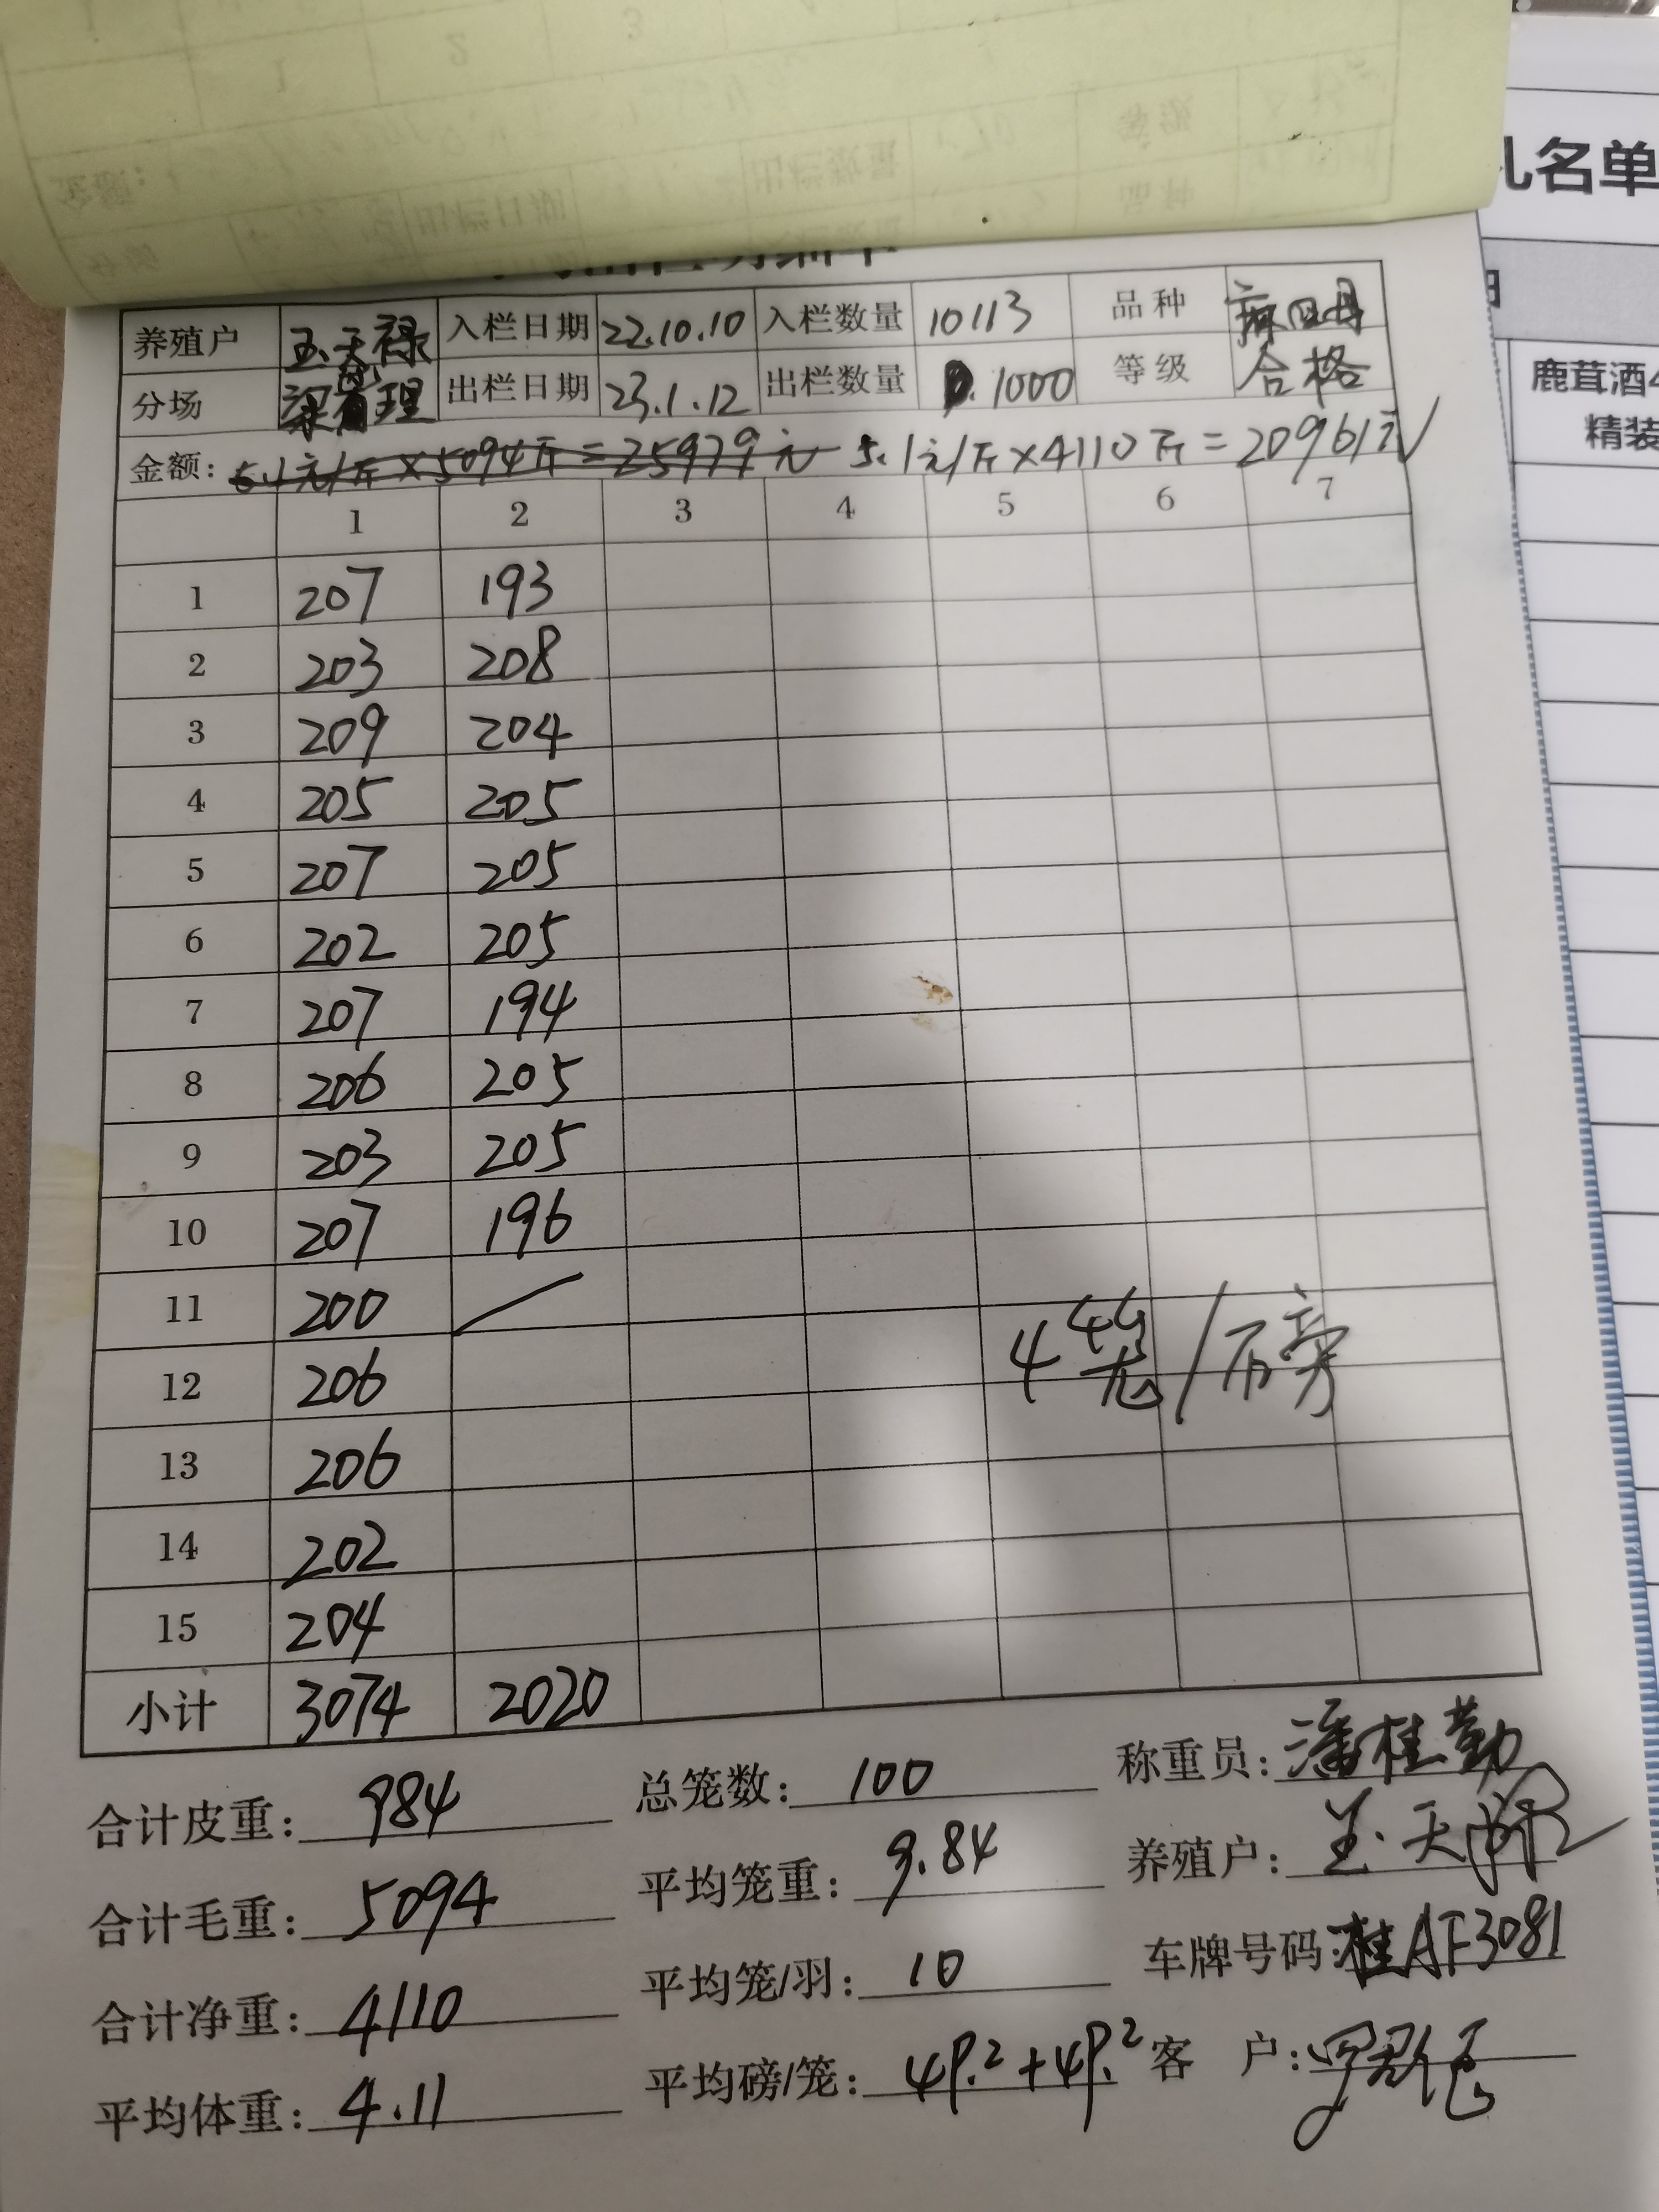 礼名单
鹿茸酒4
精装
养殖户 玉天禄 入栏日期 22.10.10 入栏数量 10113 品种
分场 出栏日期 23.1.12 出栏数量 1000 等级 合格
金额: 5.1元/斤×5094斤=25979元 5.1元/斤×4110斤=20961元
1 2 3 4 5 6 7
1 207 193
2 203 208
3 209 204
4 205 205
5 207 205
6 202 205
7 207 194
8 206 205
9 203 205
10 207 196
11 200
12 206
13 206
14 202
15 204
4笼/磅
小计 3074 2020
合计皮重: 984 总笼数: 100 称重员: 潘桂勤
合计毛重: 5094 平均笼重: 9.84 养殖户: 玉天禄
合计净重: 4110 平均笼/羽: 10 车牌号码: 桂AF3081
平均体重: 4.11 平均磅/笼: 客 户: